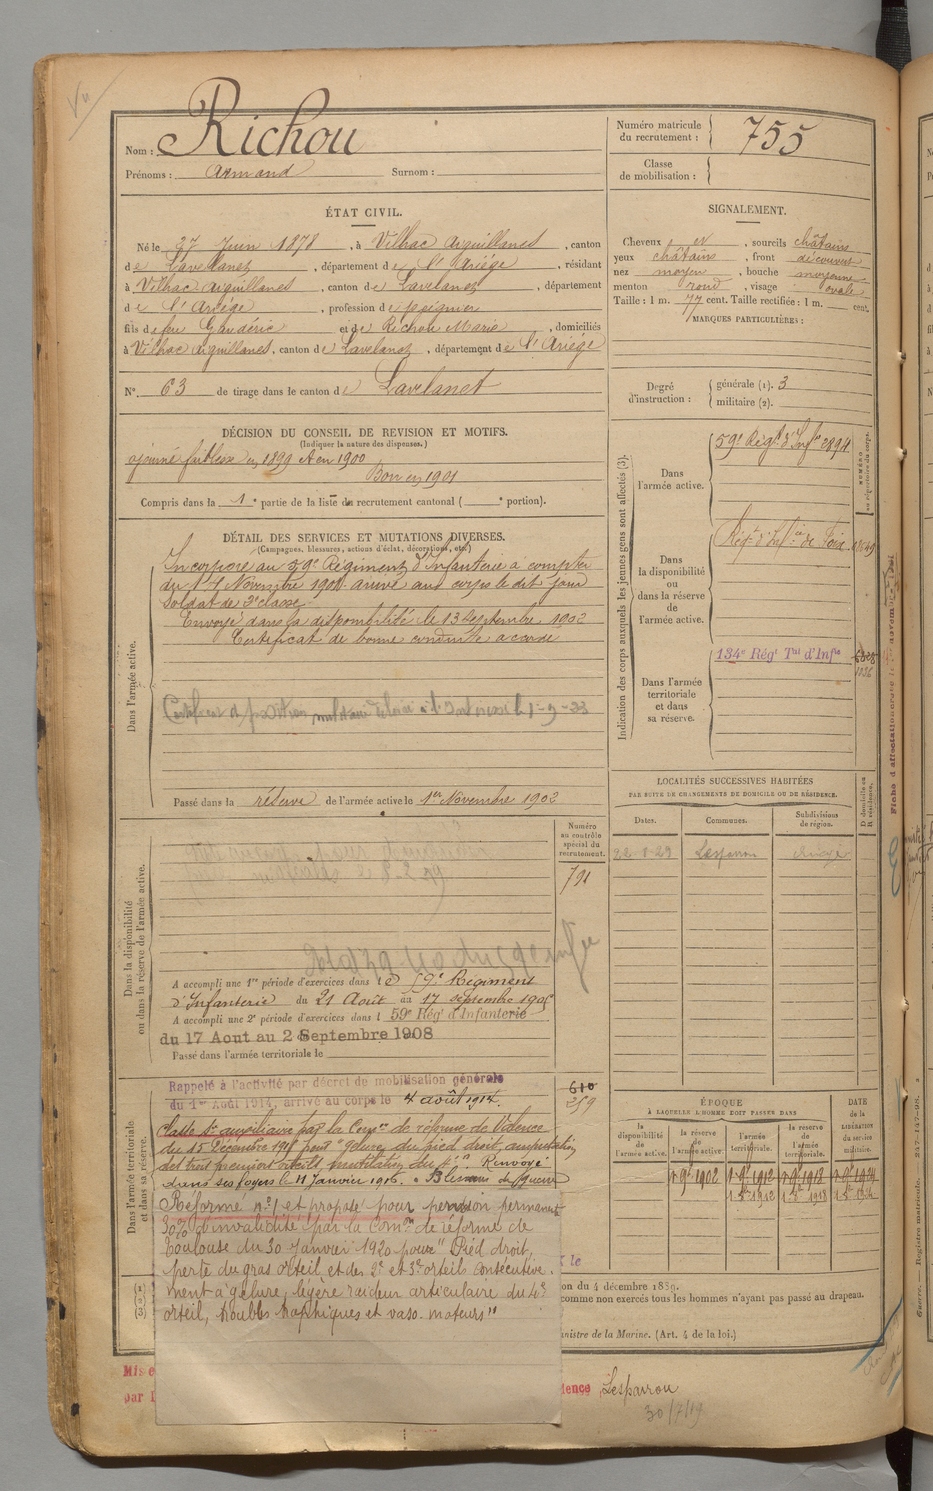 Nom : Richou
Prénoms : Armand Surnom :
Numéro matricule du recrutement : 755
Classe de mobilisation :
ÉTAT CIVIL.
Né le 27 Juin 1878, à Vilhac Aiguillanes, canton
de Lavelanet, département de l'Ariége, résidant
à Vilhac Aiguillanes, canton de Lavelanet, département
de l'Ariége, profession de
fils de feu Gaudéric et de Richou Marie, domiciliés
à Vilhac Aiguillanes, canton de Lavelanet, département de l'Ariége
N° 63 de tirage dans le canton de Lavelanet
SIGNALEMENT.
Cheveux et, sourcils châtains
yeux châtains, front découvert
nez moyen, bouche moyenne
menton rond, visage ovale
Taille : 1 m. 77 cent. Taille rectifiée : 1 m. cent.
MARQUES PARTICULIÈRES :
Degré d'instruction : générale (1). 3
militaire (2).
DÉCISION DU CONSEIL DE REVISION ET MOTIFS.
(Indiquer la nature des dispenses.)
ajourné faiblesse en 1899 et en 1900
Bon en 1901
Compris dans la 1e partie de la liste de recrutement cantonal ( e portion).
DÉTAIL DES SERVICES ET MUTATIONS DIVERSES.
(Campagnes, blessures, actions d'éclat, décorations, etc.)
Dans l'armée active.
Incorporé au 59e Régiment d'Infanterie à compter
du Novembre 1901 arrivé au corps le dit jour
soldat de 2e classe
Envoyé dans la disponibilité le 13 Septembre 1902
Certificat de bonne conduite accordé
Certificat de position militaire le 1-9-33
Passé dans la réserve de l'armée active le 1er Novembre 1902
Indication des corps auxquels les jeunes gens sont affectés (3).
Dans l'armée active. 59e Régt d'Infie 2894
NUMÉRO au répertoire du corps.
Dans la disponibilité ou dans la réserve de l'armée active. Régt d'Infie de Foix
Dans l'armée territoriale et dans sa réserve. 134e Régt Tal d'Infie
LOCALITÉS SUCCESSIVES HABITÉES
PAR SUITE DE CHANGEMENTS DE DOMICILE OU DE RÉSIDENCE.
Dates. Communes. Subdivisions de région. D. domicile ou R. résidence.
Lesparrou
Dans la disponibilité ou dans la réserve de l'armée active.
Numéro au contrôle spécial du recrutement.
791
A accompli une 1re période d'exercices dans le 59e Régiment
d'Infanterie du 21 Août au 17 septembre 1905
A accompli une 2e période d'exercices dans le 59e Régt d'Infanterie
du 17 Aout au 2 Septembre 1908
Passé dans l'armée territoriale le
Dans l'armée territoriale et dans sa réserve.
Rappelé à l'activité par décret de mobilisation générale
du 1er Août 1914, arrivé au corps le 4 août 1914.
610
259
Classé Sce auxiliaire par la Comon de réforme de Valence
du 15 Décembre 1915 pour "gelure du pied droit, amputation
des trois premiers orteils, mutilation du 4e". Renvoyé
dans ses foyers le 11 janvier 1916. Blessures de guerre
Réformé n° 1 et proposé pour pension permanente
30% d'invalidité par la Comon de réforme de
Toulouse du 30 Janvier 1920 pour "Pied droit,
perte du gros orteil et des 2e et 3e orteils consécutive-
ment à gelure, légère raideur articulaire du 4e
orteil, troubles trophiques et vaso-moteurs"
ÉPOQUE
À LAQUELLE L'HOMME DOIT PASSER DANS
la disponibilité de l'armée active. la réserve de l'armée active. l'armée territoriale. la réserve de l'armée territoriale.
DATE de la LIBÉRATION du service militaire.
1902 1912 1918 1924
on du 4 décembre 1889.
comme non exercés tous les hommes n'ayant pas passé au drapeau.
nistre de la Marine. (Art. 4 de la loi.)
Mis e
par l
dence Lesparrou
30/7/19
Guerre. — Registre matricule. 247-147-98.